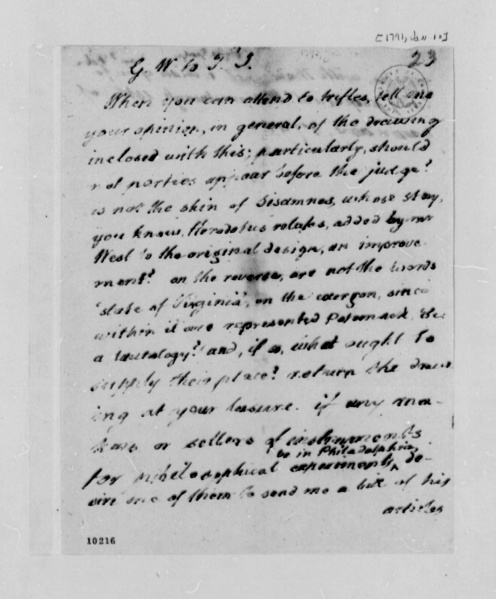 [1791, Jan 11]
23
G. W. to T. J.
When you can attend to trifles, tell me
your opinion, in general, of the drawing
inclosed with this; particularly, should
not parties appear before the judge?
is not the skin of Sisamnes, whose story,
you know, Herodotus relates, added by mr
West to the original design, an improve-
ment? on the reverse, are not the words
'state of Virginia', on the exergon, since
within it are represented Potomack, &c
a tautology? and, if so, what ought to
supply their place? return the draw-
ing at your leasure. if any ma-
kers or sellers of instruments
be in Philadelphia,
for philosophical experiments, de-
sire one of them to send me a list of his
articles
10216